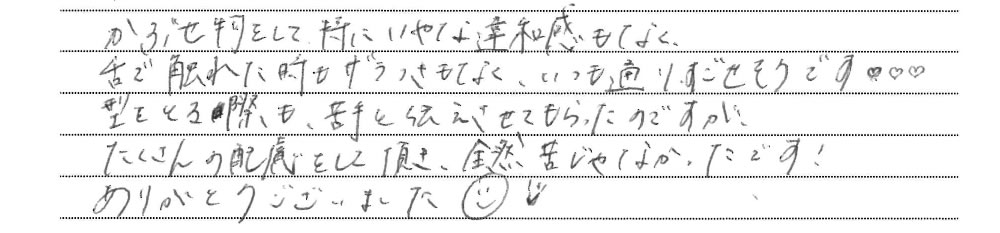 かぶせ物をして特にいやな違和感もなく、
舌で触れた時もザラつきもなく、いつも通りすごせそうです♡♡♡
型をとる際も、苦手と伝えさせてもらったのですが、
たくさんの配慮をして頂き、全然苦じゃなかったです！
ありがとうございました